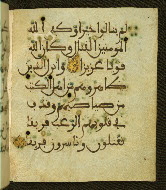 لم ينالوا خيرا وكفى الله
المومنين القتال وكان الله
قويا عزيزا وانزل الذين
ظهروهم من اهل الكتب
من صياصيهم وقذف
في قلوبهم الرعب فريقا
تقتلون وتاسرون فريقا